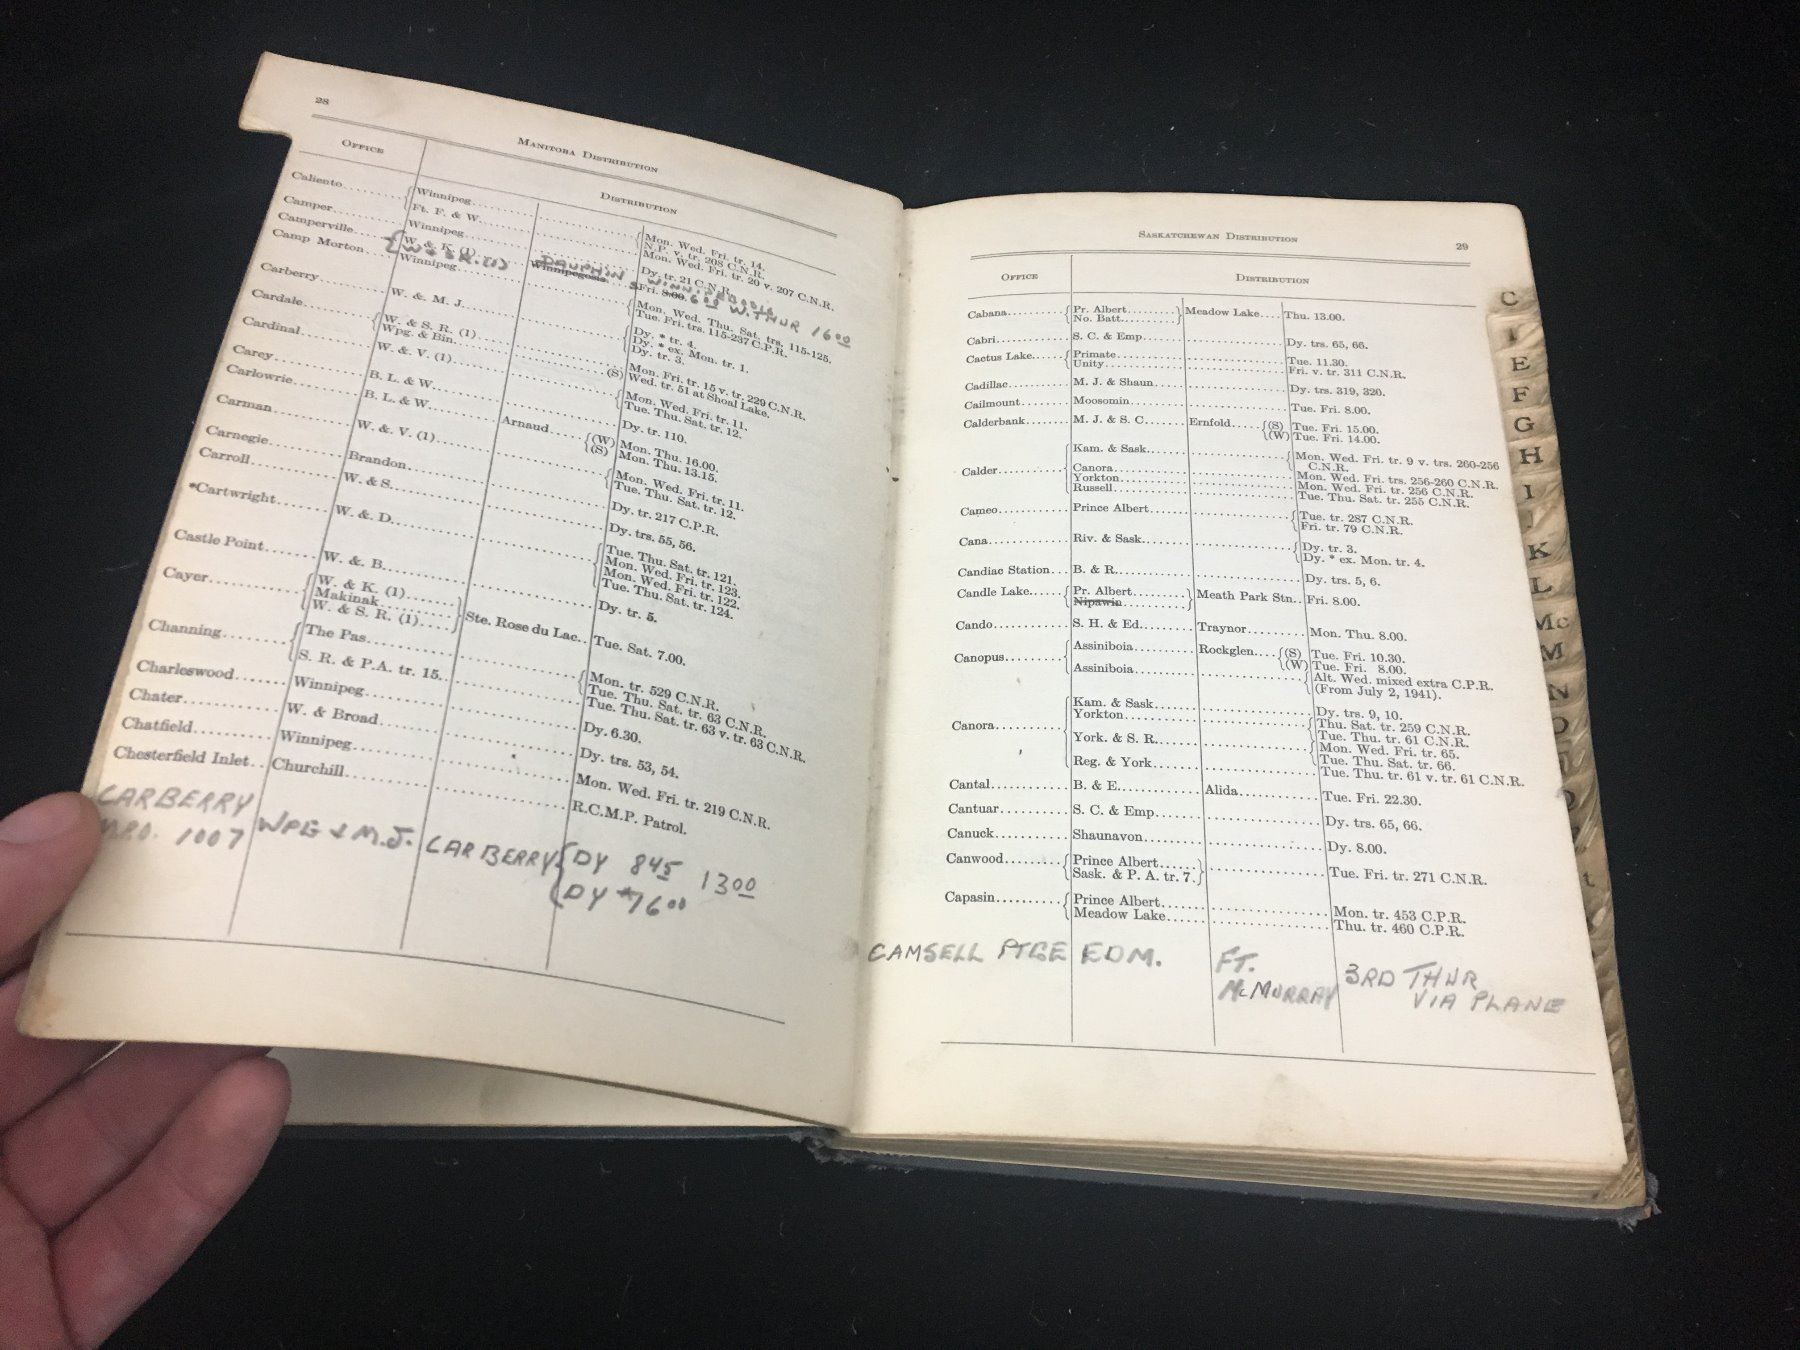 28
MANITOBA DISTRIBUTION
OFFICE DISTRIBUTION
Caliento........ { Winnipeg........ { Mon. Wed. Fri. tr. 14.
Ft. F. & W........ N.P. v. tr. 208 C.N.R.
Camper........ Winnipeg........ Mon. Wed. Fri. tr. 20 v. 207 C.N.R.
Camperville.... { W. & K. (1) DAUPHIN Dy. tr. 21 C.N.R.
W & S R. (1) Winnipegosis WINNIPEGOSIS
Fri. 8.00. 600 W. THUR 1600
Camp Morton.. Winnipeg........ { Mon. Wed. Thu. Sat. trs. 115-125.
Tue. Fri. trs. 115-237 C.P.R.
Carberry........ W. & M. J........ { Dy. * tr. 4.
Dy. * ex. Mon. tr. 1.
Dy. tr. 3.
Cardale........ { W. & S. R. (1)........ Mon. Fri. tr. 15 v. tr. 229 C.N.R.
Wpg. & Bin........ (S) Wed. tr. 51 at Shoal Lake.
Cardinal........ W. & V. (1)........ { Mon. Wed. Fri. tr. 11.
Tue. Thu. Sat. tr. 12.
Carey........ B. L. & W........ Dy. tr. 110.
Carlowrie........ B. L. & W........ Arnaud..... { (W) Mon. Thu. 16.00.
(S) Mon. Thu. 13.15.
Carman........ W. & V. (1)........ { Mon. Wed. Fri. tr. 11.
Tue. Thu. Sat. tr. 12.
Carnegie........ Brandon........ Dy. tr. 217 C.P.R.
Carroll........ W. & S........ Dy. trs. 55, 56.
*Cartwright........ W. & D........ { Tue. Thu. Sat. tr. 121.
Mon. Wed. Fri. tr. 123.
Mon. Wed. Fri. tr. 122.
Tue. Thu. Sat. tr. 124.
Castle Point....... W. & B........ Dy. tr. 5.
Cayer........ { W. & K. (1)..... } Ste. Rose du Lac.. Tue. Sat. 7.00.
Makinak........
W. & S. R. (1)....
Channing........ { The Pas........ Mon. tr. 529 C.N.R.
{ Tue. Thu. Sat. tr. 63 C.N.R.
S. R. & P.A. tr. 15........ Tue. Thu. Sat. tr. 63 v. tr. 63 C.N.R.
Charleswood....... Winnipeg........ Dy. 6.30.
Chater........ W. & Broad........ Dy. trs. 53, 54.
Chatfield........ Winnipeg........ Mon. Wed. Fri. tr. 219 C.N.R.
Chesterfield Inlet.. Churchill........ R.C.M.P. Patrol.
CARBERRY WPG & M.J. CARBERRY { DY 845 1300
M.P.O. 1007 DY *7600
SASKATCHEWAN DISTRIBUTION 29
OFFICE DISTRIBUTION
Cabana........ { Pr. Albert........ } Meadow Lake.... Thu. 13.00.
No. Batt........
Cabri........ S. C. & Emp........ Dy. trs. 65, 66.
Cactus Lake..... { Primate........ Tue. 11.30.
Unity........ Fri. v. tr. 311 C.N.R.
Cadillac........ M. J. & Shaun........ Dy. trs. 319, 320.
Cailmount........ Moosomin........ Tue. Fri. 8.00.
Calderbank........ M. J. & S. C...... Ernfold..... { (S) Tue. Fri. 15.00.
(W) Tue. Fri. 14.00.
Calder........ { Kam. & Sask........ { Mon. Wed. Fri. tr. 9 v. trs. 260-256
C.N.R.
Canora........ Mon. Wed. Fri. trs. 256-260 C.N.R.
Yorkton........ Mon. Wed. Fri. tr. 256 C.N.R.
Russell........ Tue. Thu. Sat. tr. 255 C.N.R.
Cameo........ Prince Albert........ { Tue. tr. 287 C.N.R.
Fri. tr. 79 C.N.R.
Cana........ Riv. & Sask........ { Dy. tr. 3.
Dy. * ex. Mon. tr. 4.
Candiac Station... B. & R........ Dy. trs. 5, 6.
Candle Lake..... { Pr. Albert........ } Meath Park Stn.. Fri. 8.00.
Nipawin........
Cando........ S. H. & Ed........ Traynor........ Mon. Thu. 8.00.
Canopus........ { Assiniboia........ Rockglen.... { (S) Tue. Fri. 10.30.
(W) Tue. Fri. 8.00.
Assiniboia........ { Alt. Wed. mixed extra C.P.R.
(From July 2, 1941).
Canora........ { Kam. & Sask........ Dy. trs. 9, 10.
Yorkton........ { Thu. Sat. tr. 259 C.N.R.
Tue. Thu. tr. 61 C.N.R.
York. & S. R........ { Mon. Wed. Fri. tr. 65.
Tue. Thu. Sat. tr. 66.
Reg. & York........ Tue. Thu. tr. 61 v. tr. 61 C.N.R.
Cantal........ B. & E........ Alida........ Tue. Fri. 22.30.
Cantuar........ S. C. & Emp........ Dy. trs. 65, 66.
Canuck........ Shaunavon........ Dy. 8.00.
Canwood........ { Prince Albert..... } Tue. Fri. tr. 271 C.N.R.
Sask. & P. A. tr. 7.
Capasin........ { Prince Albert........ Mon. tr. 453 C.P.R.
Meadow Lake........ Thu. tr. 460 C.P.R.
CAMSELL PTGE EDM. FT. 3RD THUR
McMURRAY VIA PLANE
C
I
E
F
G
H
I
K
L
Mc
M
N
O
t